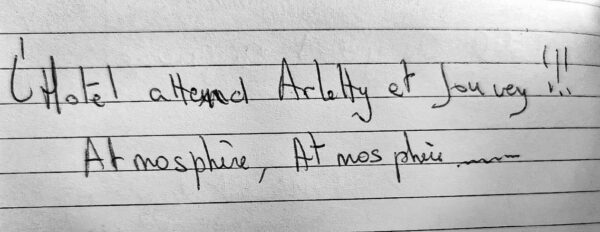 L'Hotel attend Arletty et Jouvey !!!
Atmosphère, Atmosphère ......